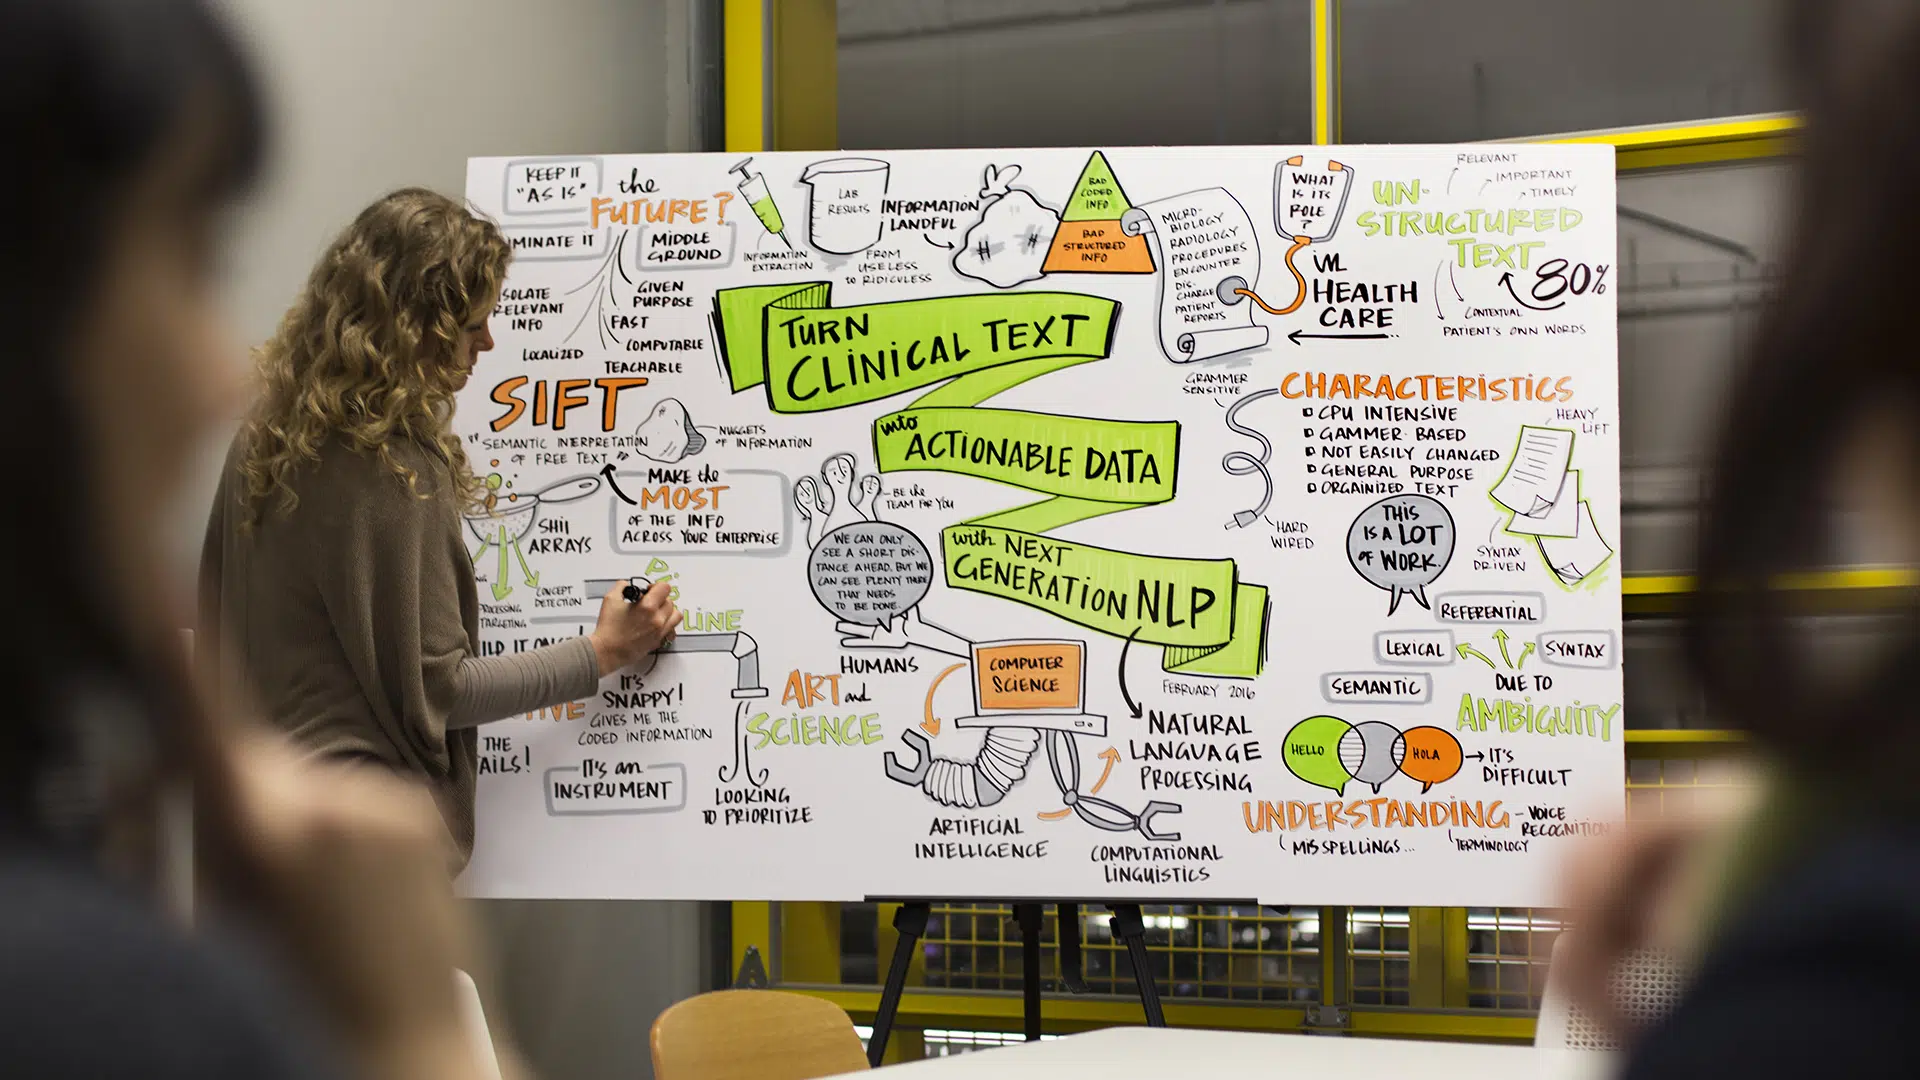 KEEP IT
"AS IS"
the
FUTURE?
MINATE IT
MIDDLE
GROUND
SOLATE
RELEVANT
INFO
GIVEN
PURPOSE
FAST
LOCALIZED
COMPUTABLE
TEACHABLE
INFORMATION
EXTRACTION
LAB
RESULTS
INFORMATION
LANDFUL
FROM
USELESS
to RIDICULESS
BAD
CODED
INFO
BAD
STRUCTURED
INFO
MICRO-
BIOLOGY
RADIOLOGY
PROCEDURES
ENCOUNTER
DIS-
CHARGE
PATIENT
REPORTS
WHAT
IS ITS
ROLE
?
IN
HEALTH
CARE
UN-
STRUCTURED
TEXT
RELEVANT
IMPORTANT
TIMELY
80%
CONTEXTUAL
PATIENT'S OWN WORDS
TURN
CLINICAL TEXT
into
ACTIONABLE DATA
with NEXT
GENERATION NLP
FEBRUARY 2016
SIFT
"SEMANTIC INTERPRETATION
OF FREE TEXT"
NUGGETS
OF INFORMATION
MAKE the
MOST
OF THE INFO
ACROSS YOUR ENTERPRISE
ARRAYS
CONCEPT
DETECTION
TARGETING
LINE
IT'S
SNAPPY!
GIVES ME THE
CODED INFORMATION
THE
AILS!
IT'S an
INSTRUMENT
LOOKING
TO PRIORITIZE
BE the
TEAM FOR YOU
WE CAN ONLY
SEE A SHORT DIS-
TANCE AHEAD. BUT WE
CAN SEE PLENTY THERE
THAT NEEDS
TO BE DONE.
HUMANS
ART and
SCIENCE
COMPUTER
SCIENCE
ARTIFICIAL
INTELLIGENCE
COMPUTATIONAL
LINGUISTICS
NATURAL
LANGUAGE
PROCESSING
GRAMMER
SENSITIVE
CHARACTERISTICS
CPU INTENSIVE
GAMMER-BASED
NOT EASILY CHANGED
GENERAL PURPOSE
ORGAINIZED TEXT
HEAVY
LIFT
HARD
WIRED
THIS
IS A LOT
OF WORK.
SYNTAX
DRIVEN
REFERENTIAL
LEXICAL
SYNTAX
SEMANTIC
DUE TO
AMBIGUITY
HELLO
HOLA
IT'S
DIFFICULT
UNDERSTANDING
VOICE
RECOGNITION
MISSPELLINGS...
TERMINOLOGY